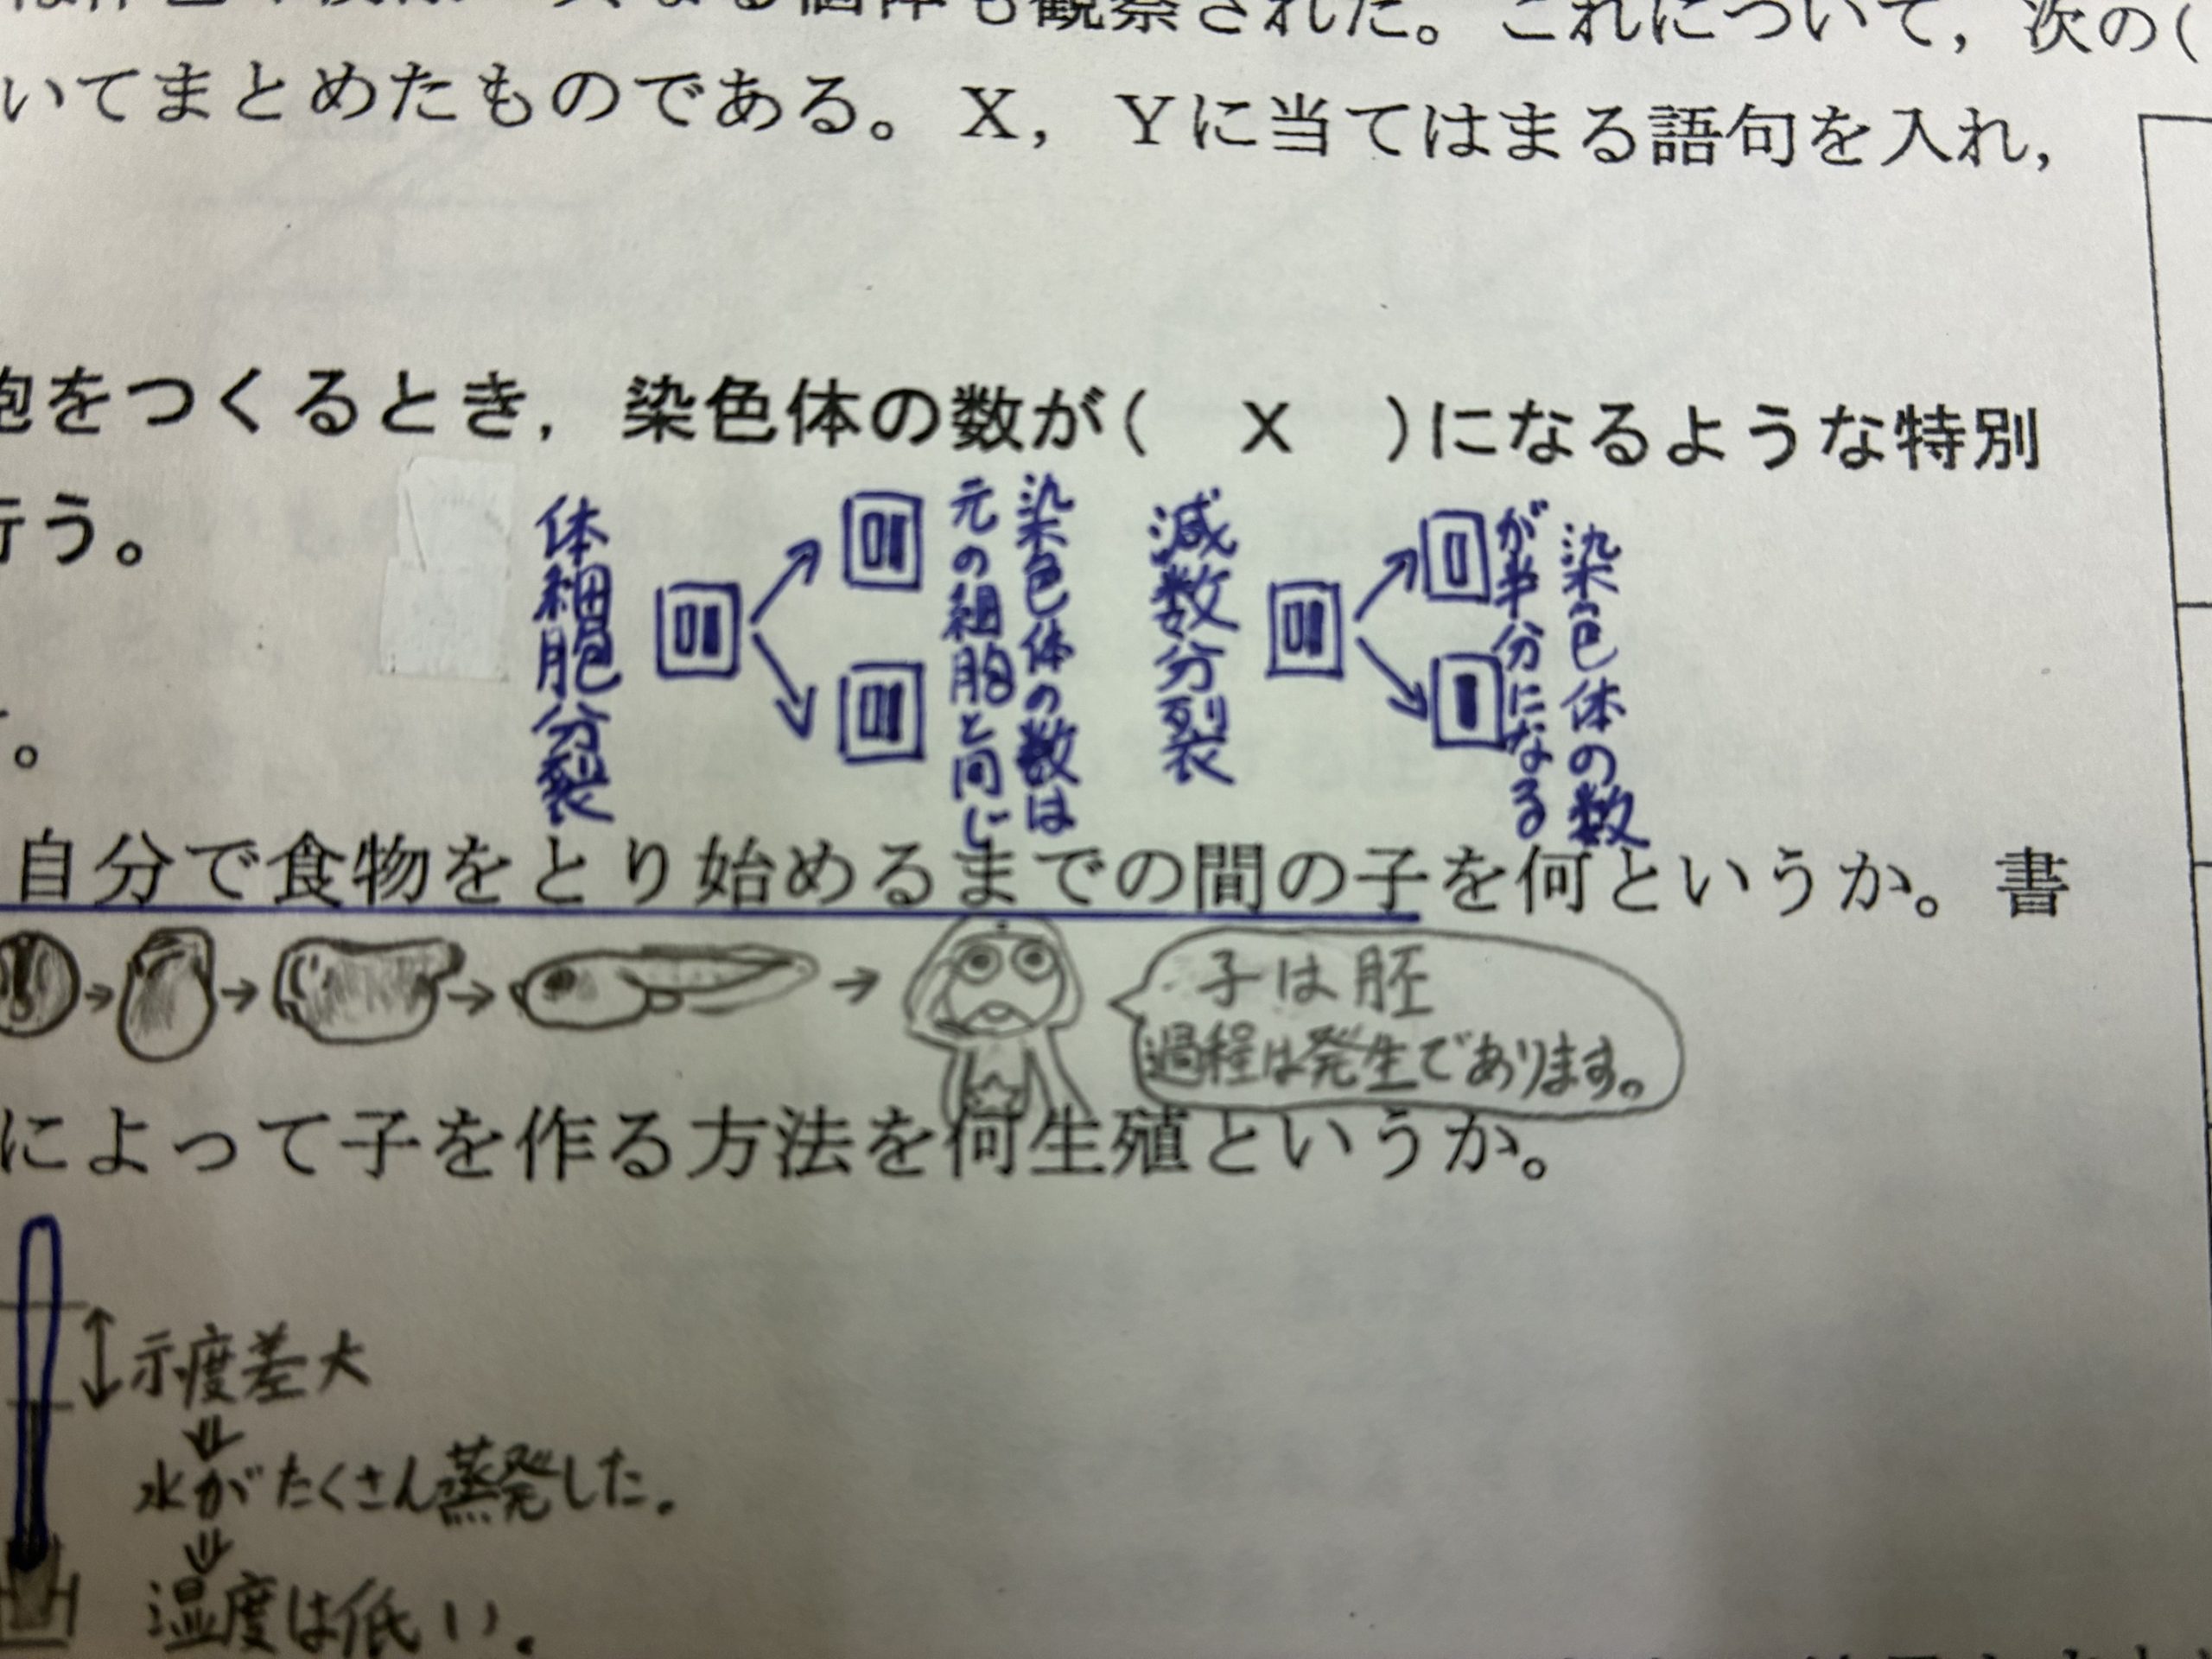 個体も観察された。これについて，次の(
いてまとめたものである。X，Yに当てはまる語句を入れ，
胞をつくるとき，染色体の数が(　X　)になるような特別
行う。
体細胞分裂
染色体の数は
元の細胞と同じ
減数分裂
染色体の数
が半分になる
。
自分で食物をとり始めるまでの間の子を何というか。書
子は胚
過程は発生であります。
によって子を作る方法を何生殖というか。
示度差大
水がたくさん蒸発した。
湿度は低い。